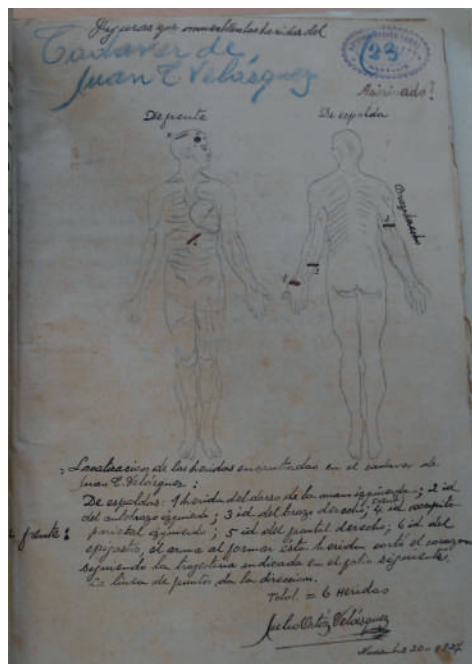 Figuras que muestran las heridas del
Cadaver de
Juan E. Velásquez
23
Asesinado?
De frente
De espalda
Localizacion de las heridas encontradas en el cadaver de
Juan E. Velásquez:
De espaldas: 1 herida del dorso de la mano izquierda; 2 id
del antebrazo izquierdo; 3 id del brazo derecho; 4 id occipito
frente: parietal izquierdo; 5 id del frontal derecho; 6 id del
epigastrio, el arma al formar esta herida cortó el corazon
siguiendo la trayectoria indicada en el folio siguiente.
La linea de puntos da la direccion.
Total. = 6 Heridas
Julio Ortiz Velásquez
Noviembre 20-1927